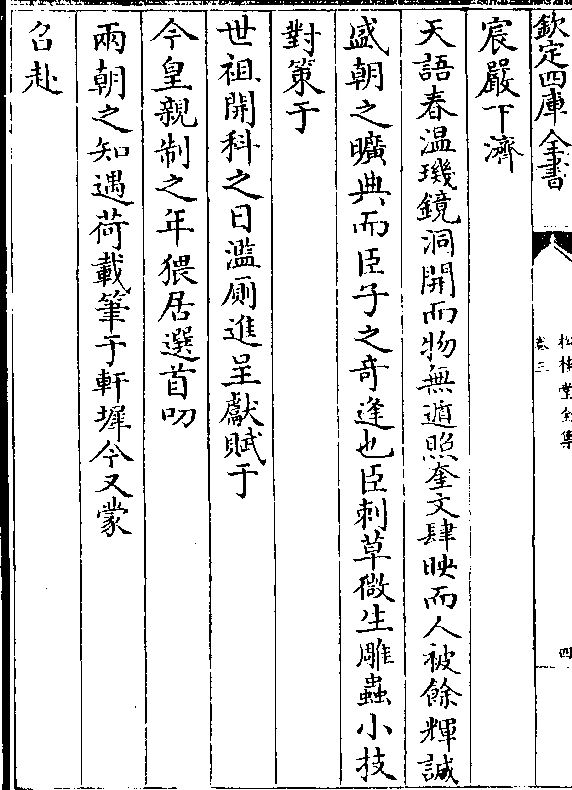 欽定四庫全書
松桂堂全集
卷三
四
宸嚴下濟
天語春温璣鏡洞開而物無遁照奎文肆映而人被餘輝誠
盛朝之曠典而臣子之奇逢也臣刺草微生雕蟲小技
對策于
世祖開科之日濫厠進呈獻賦于
今皇親制之年猥居選首叨
兩朝之知遇荷載筆于軒墀今又蒙
召赴